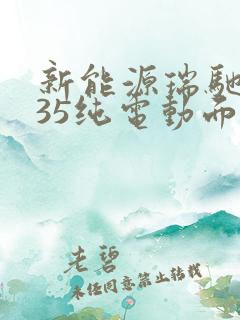 新能源瑞馳
35纯電動面
老碧
未经同意禁止转载